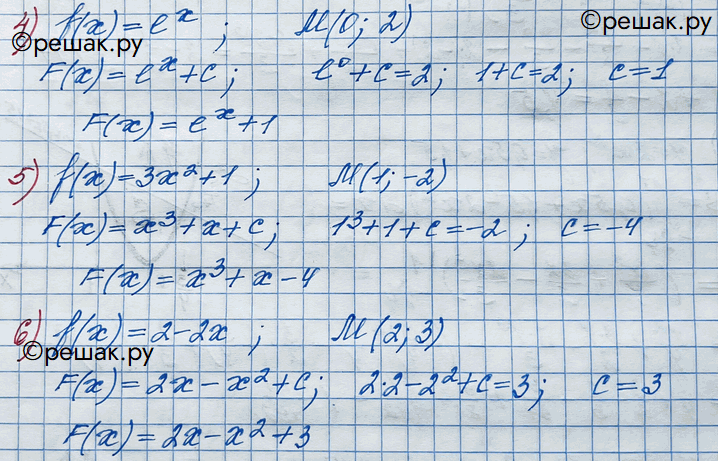 4) f(x) = e^x ; M(0; 2)
©решак.ру
©решак.ру
F(x) = e^x + C ; e^0 + C = 2; 1 + C = 2; C = 1
F(x) = e^x + 1
5) f(x) = 3x^2 + 1 ; M(1; -2)
F(x) = x^3 + x + C ; 1^3 + 1 + C = -2 ; C = -4
F(x) = x^3 + x - 4
6) f(x) = 2 - 2x ; M(2; 3)
©решак.ру
©решак.ру
F(x) = 2x - x^2 + C ; 2·2 - 2^2 + C = 3; C = 3
F(x) = 2x - x^2 + 3